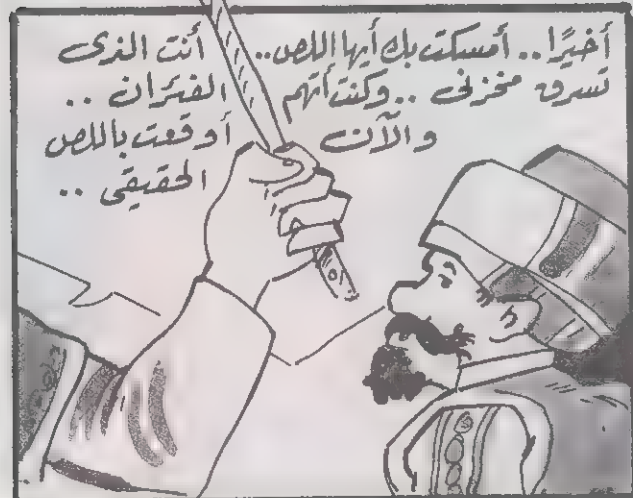 أخيرًا.. أمسكت بك أيها اللص.. أنت الذى
تسرق مخزنى .. وكنت أتهم الفئران ..
والآن أوقعت باللص
الحقيقى ..